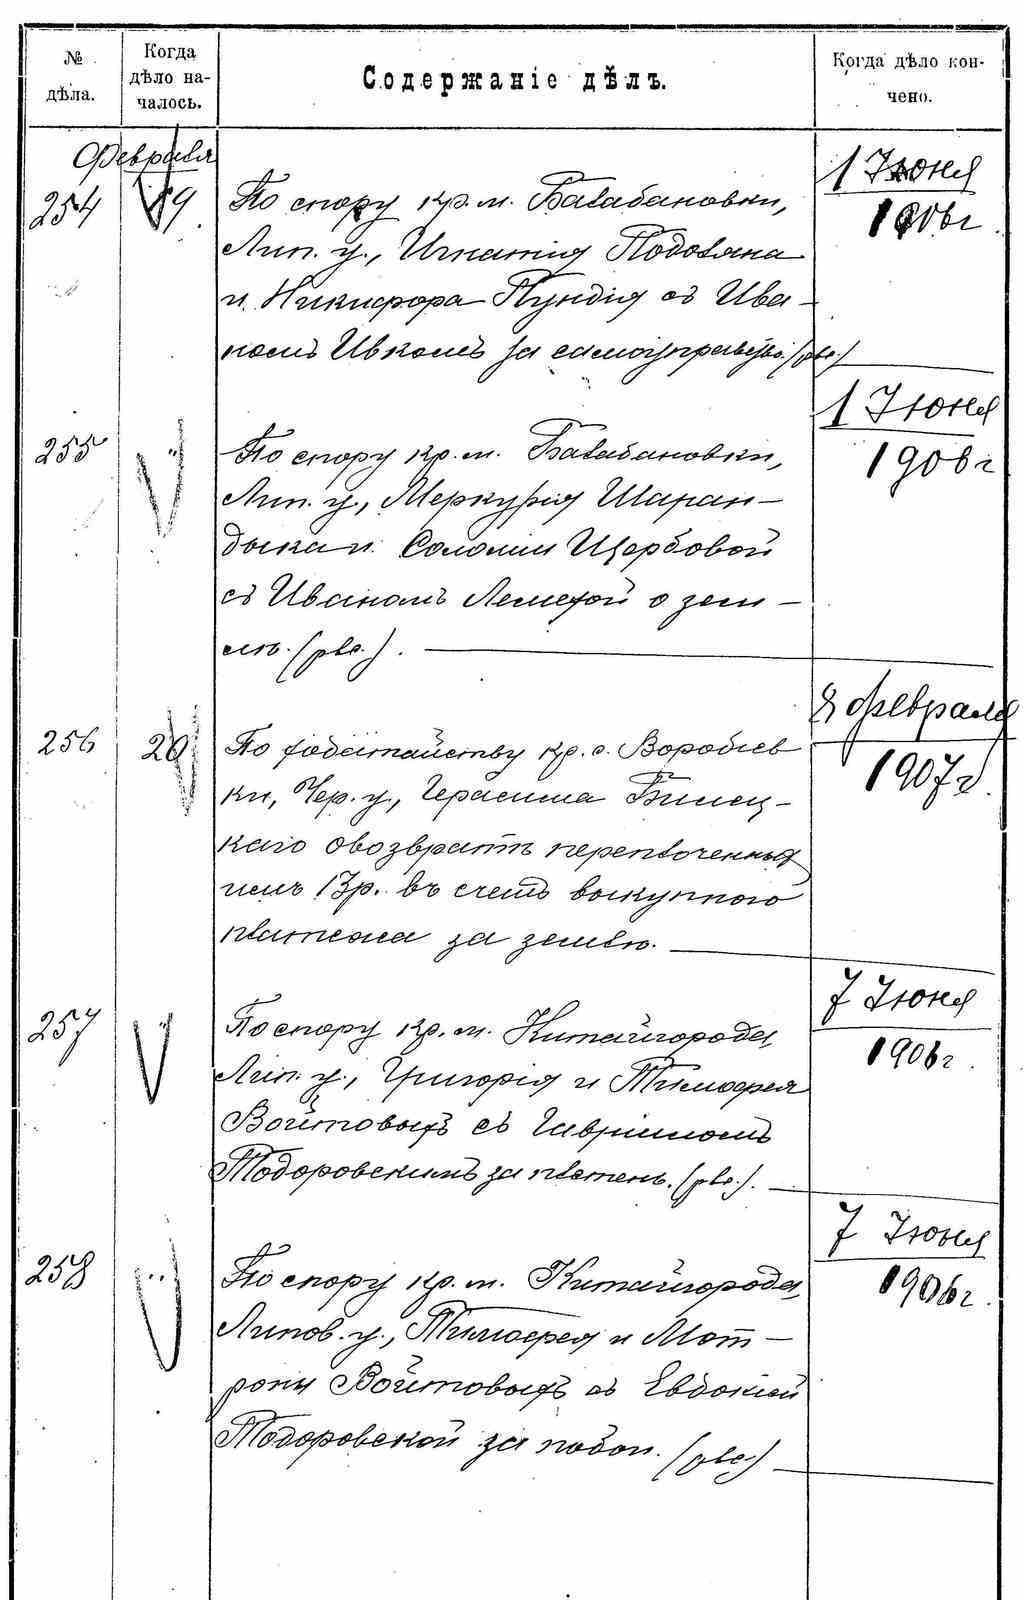 № дѣла.
Когда дѣло на-
чалось.
Содержаніе дѣлъ.
Когда дѣло кон-
чено.
Февраля
254 19 По спору кр. м. Балабановки,
Лип. у., Игнатія Подоляна
и Никифора Пундія съ Ива-
номъ Ивкомъ за самоуправство. (рѣв.)
1 Июня
1906 г.
255 " По спору кр. м. Балабановки,
Лип. у., Меркурія Шаран-
дыка и Соломіи Щербовой
съ Иваномъ о зем-
лѣ. (рѣв.).
1 Июня
1906 г
256 20 По ходатайству кр. с. Воробіев
ки, Чер. у., Герасима Билец-
каго о возвратѣ переплоченныхъ
имъ 13 р. въ счетъ выкупного
платежа за землю.
8 февраля
1907 г.
257 " По спору кр. м. Китайгорода,
Лип. у., Григорія и Тимофея
Войтовыхъ съ Гавріиломъ
Тодоровскимъ за плетень. (рѣв.).
7 Июня
1906 г.
258 " По спору кр. м. Китайгорода,
Липов. у., Тимофея и Мот-
роны Войтовыхъ съ Евдокіей
Тодоровской за побои. (рѣв.)
7 Июня
1906 г.